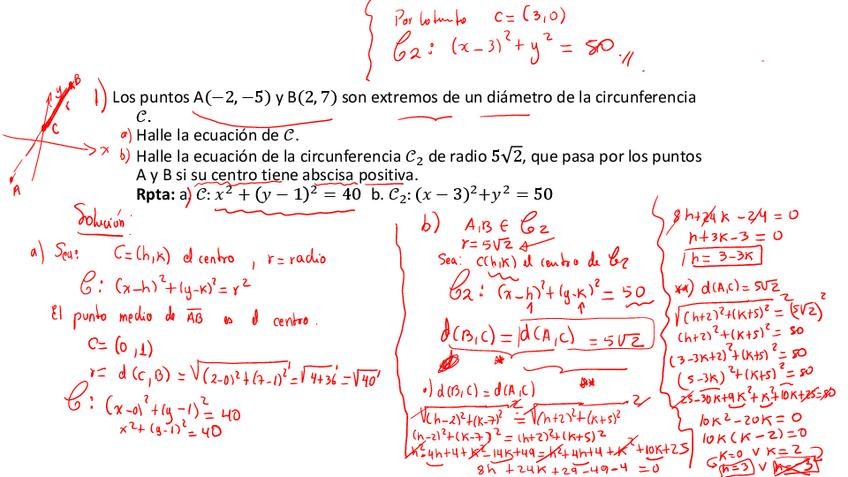 Por lo tanto C = (3,0)
C2: (x-3)² + y² = 50.//
1) Los puntos A(−2, −5) y B(2, 7) son extremos de un diámetro de la circunferencia
𝒞.
a) Halle la ecuación de 𝒞.
b) Halle la ecuación de la circunferencia 𝒞₂ de radio 5√2, que pasa por los puntos
A y B si su centro tiene abscisa positiva.
Rpta: a) 𝒞: x² + (y − 1)² = 40 b. 𝒞₂: (x − 3)²+y² = 50
y B
r
C
x
A
Solución:
a) Sea: C=(h,k) el centro, r=radio
C: (x-h)²+(y-k)²=r²
El punto medio de AB es el centro.
C=(0,1)
r= d(C,B) = √((2-0)²+(7-1)²) = √(4+36) = √40
C: (x-0)²+(y-1)²=40
x²+(y-1)²=40
b) A,B ∈ C2
r=5√2
Sea: C(h,k) el centro de C2
C2: (x-h)²+(y-k)² = 50
d(B,C) = d(A,C) = 5√2
*
**
•) d(B,C) = d(A,C)
√((h-2)²+(k-7)²)² = √((h+2)²+(k+5)²)²
(h-2)²+(k-7)² = (h+2)²+(k+5)²
h²-4h+4+k²-14k+49 = h²+4h+4+k²+10k+25
8h+24k+29-49-4=0
8h+24k-24=0
h+3k-3=0
h=3-3k
**) d(A,C)=5√2
√((h+2)²+(k+5)²)² = (5√2)²
(h+2)²+(k+5)²=50
(3-3k+2)²+(k+5)²=50
(5-3k)²+(k+5)²=50
25-30k+9k²+k²+10k+25=50
10k²-20k=0
10k(k-2)=0
k=0 ∨ k=2
h=3 ∨ h=-3